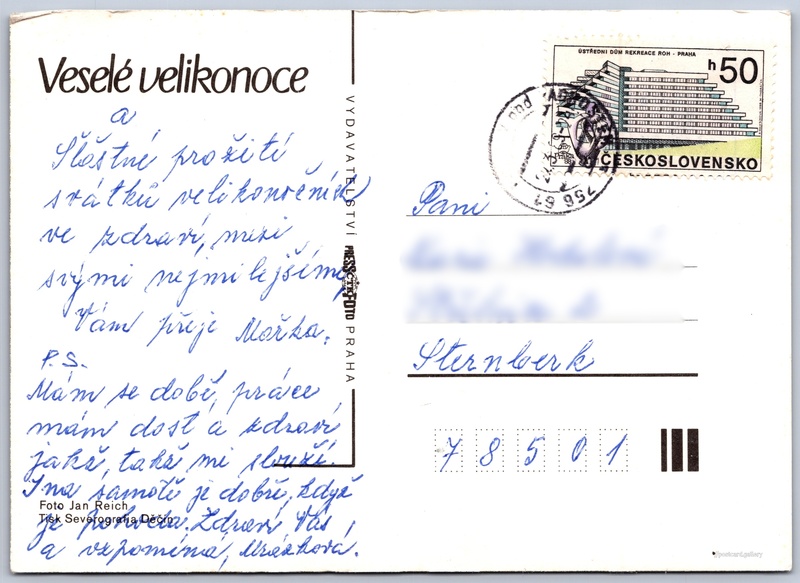 Veselé velikonoce
a
Šťastné prožití
svátků velikonočních
ve zdraví, mezi
svými nejmilejšími
Vám přeje Mařka.
P.S.
Mám se dobře, práce
mám dost a zdraví
jakž, takž mi slouží.
I na samotě je dobře, když
je pohoda. Zdraví Vás,
a vzpomíná, Mrázková.
Foto Jan Reich
Tisk Severografia Děčín
VYDAVATELSTVÍ PRESSFOTO PRAHA
ČTK
ÚSTŘEDNÍ DŮM REKREACE ROH - PRAHA
h 50
ČESKOSLOVENSKO
756 61
Paní
Šternberk
78501